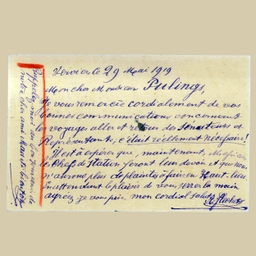 Verviers le 29 Mai 1919
Mon cher Monsieur Pulings,
Je vous remercie cordialement de vos
bonnes communications concernant
le voyage aller et retour des Sénateurs et
Représentants, c'était réellement nécessaire!
Il est à espérer que, maintenant, M
les Chefs de Station feront leur devoir et que nous
n'aurons plus de plaintes à faire en Haut lieu.
Inattendant le plaisir de vous serrer la main
agréez, je vous prie, mon cordial salut
Rappelez-moi au bon souvenir de
notre cher ami